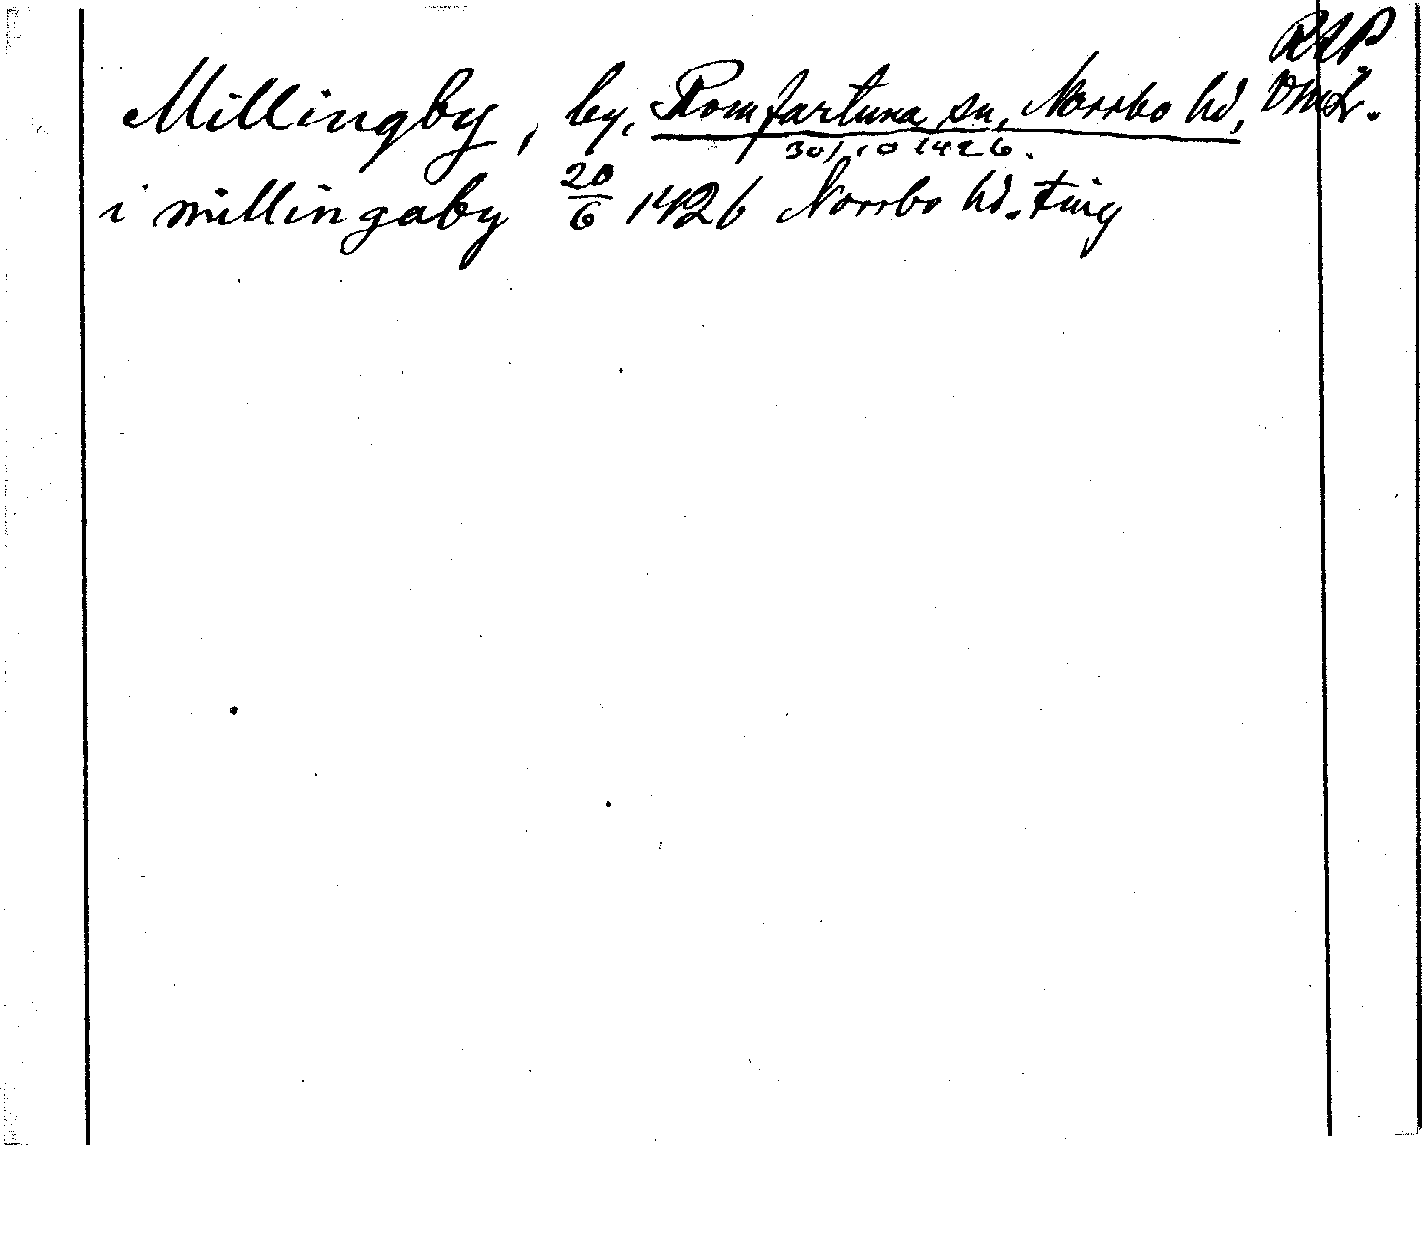 RAP
Millingby, by, Romfartuna sn, Norrbo hd, VmL.
30/10 1426.
i millingaby 20/6 1426 Norrbo hd. ting